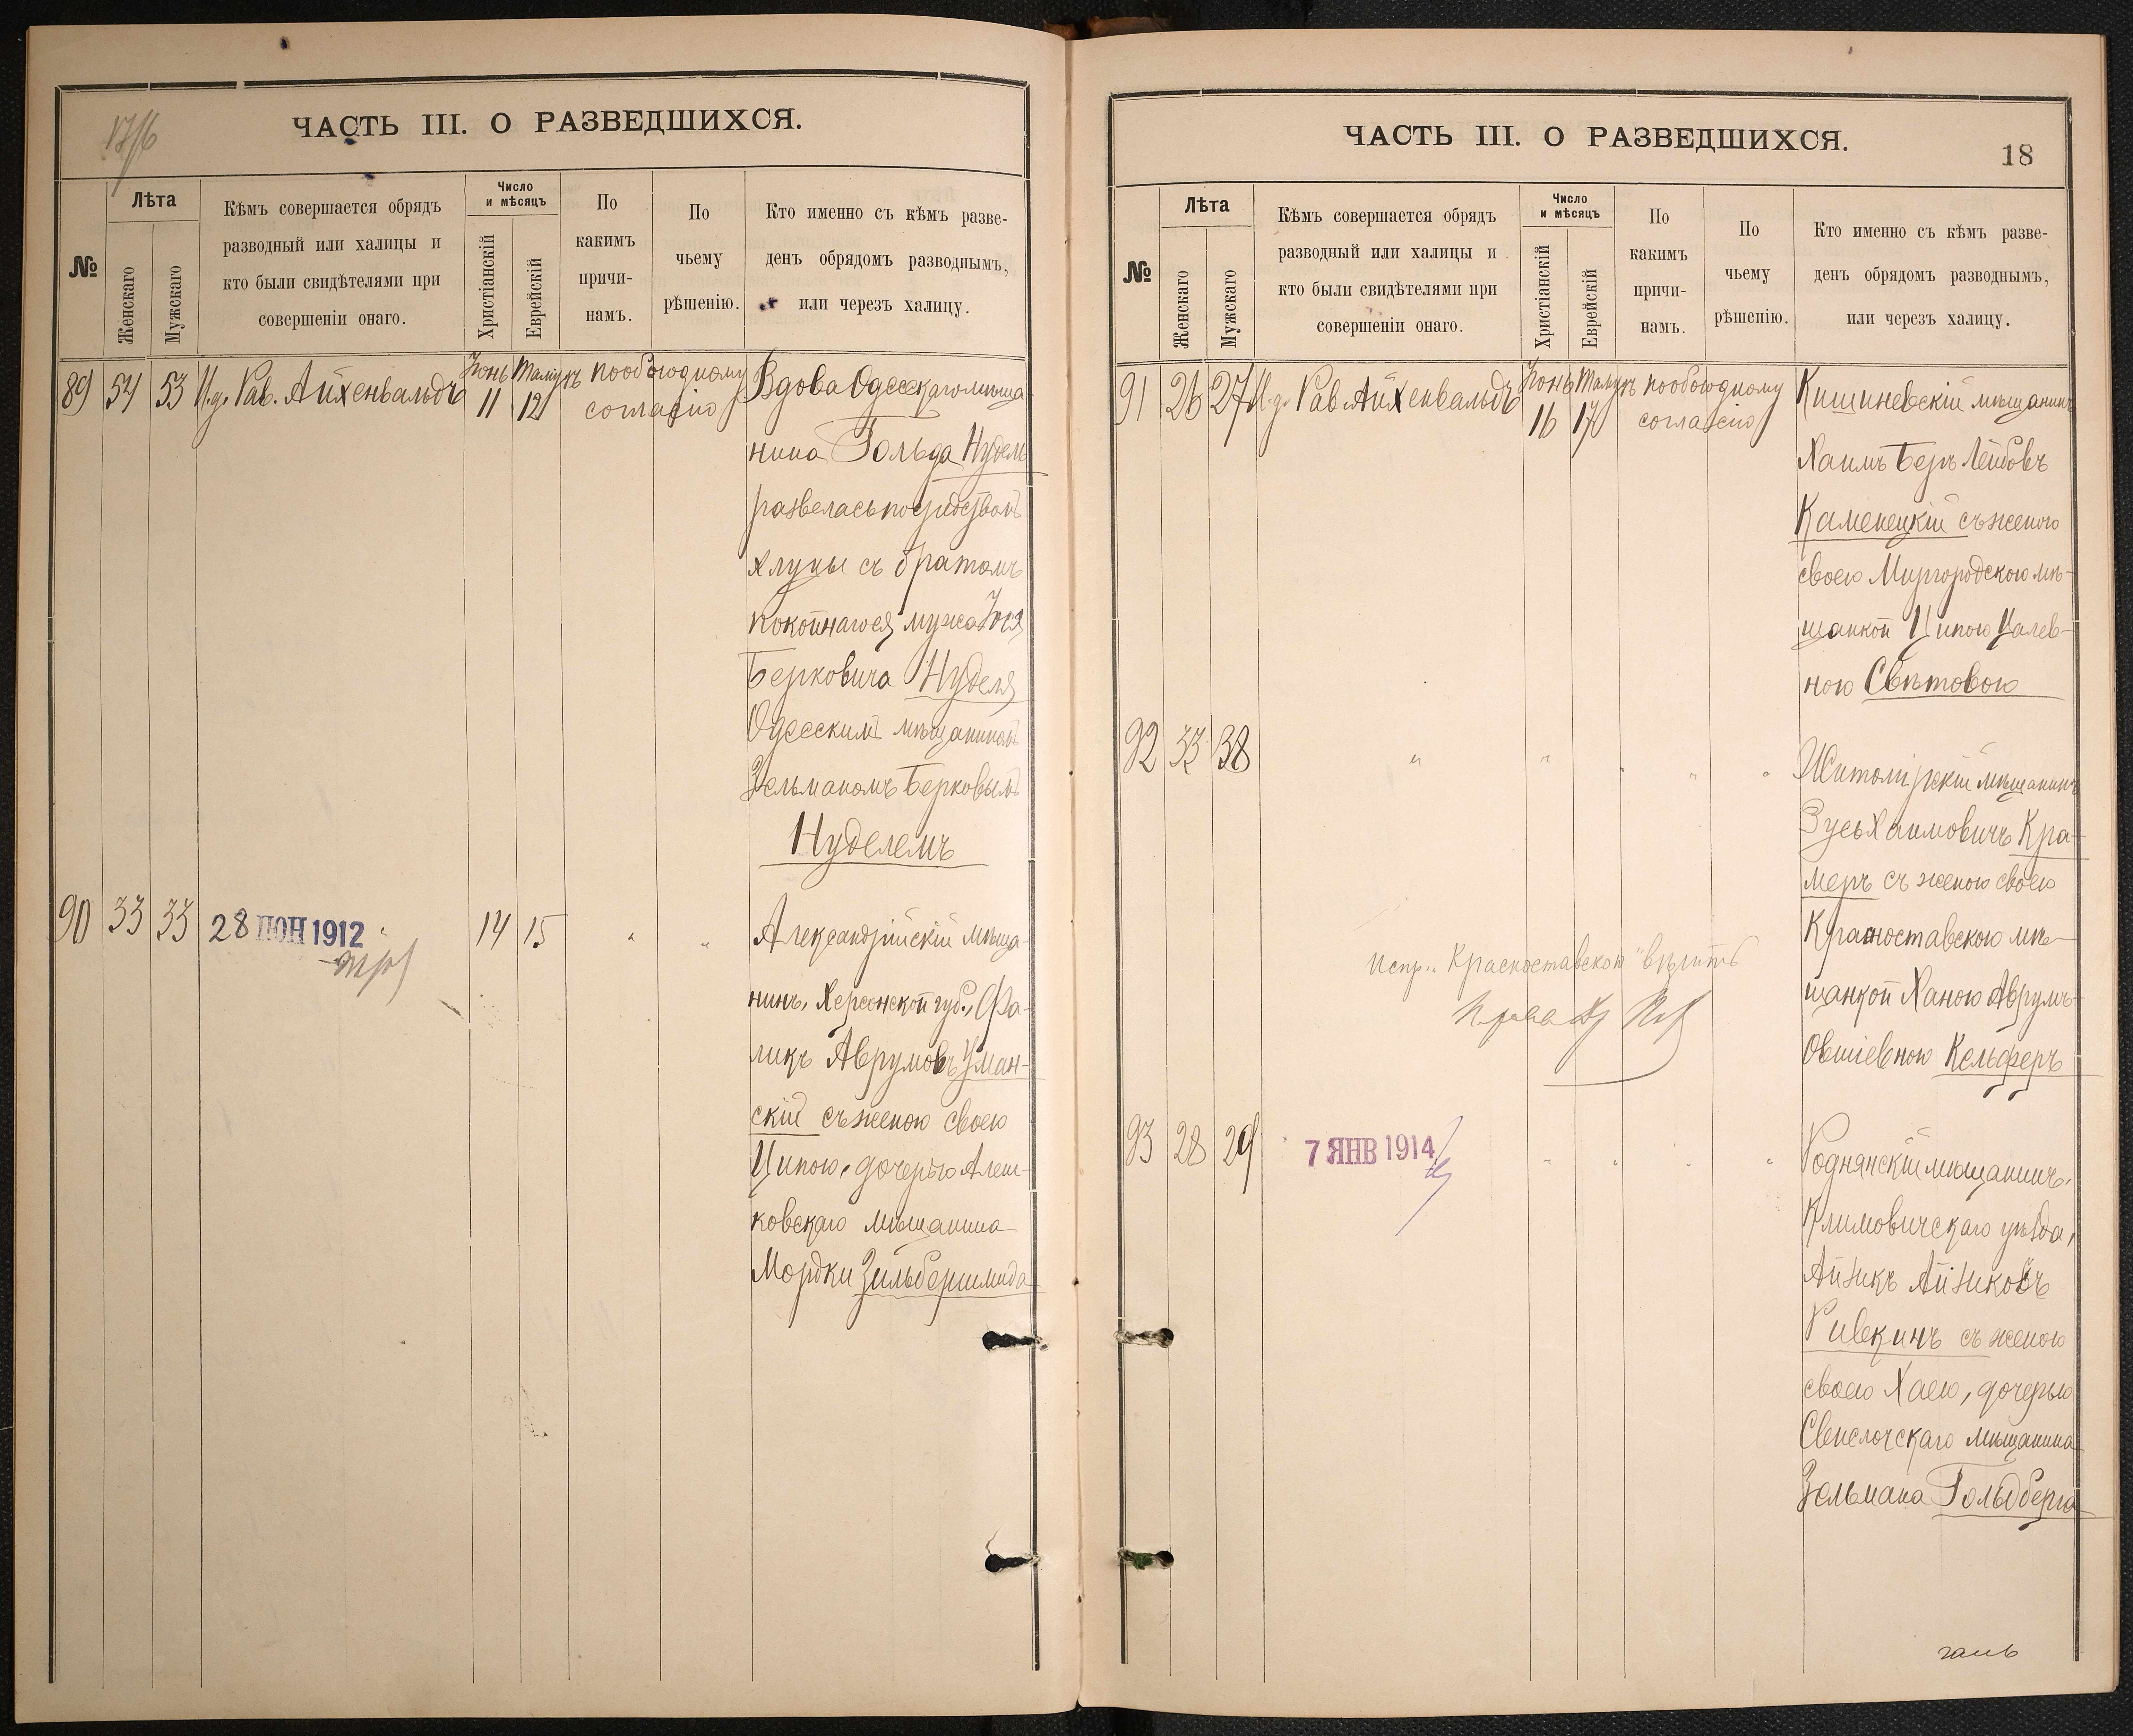 ЧАСТЬ III. О РАЗВЕДШИХСЯ.
№
Лѣта
Женскаго
Мужскаго
Кѣмъ совершается обрядъ
разводный или халицы и
кто были свидѣтелями при
совершеніи онаго.
Число
и мѣсяцъ
Христіанскій
Еврейскій
По
какимъ
причи-
намъ.
По
чьему
рѣшенію.
Кто именно съ кѣмъ разве-
денъ обрядомъ разводнымъ,
или черезъ халицу.
89 54 53 И.д. Рав. Айхенвальдъ Іюнь 11 Тамузъ 12 по обоюдному
согласію
Вдова Одесскаго мѣща-
нина Гольда Нудель
развелась посредствомъ
хлуцы съ братомъ
покойнаго ея мужа
Берковича Нуделя
Одесскимъ мѣщаниномъ
Зельманомъ Берковымъ
Нуделемъ
90 33 33 28 ІЮН 1912 " 14 15 " "
Александрійскій мѣща-
нинъ, Херсонской губ., Фа-
ликъ Аврумовъ Уман-
скій съ женою своею
Ципою, дочерью Алеш-
ковскаго мѣщанина
Мордки Зильбершмида
ЧАСТЬ III. О РАЗВЕДШИХСЯ.
18
№
Лѣта
Женскаго
Мужскаго
Кѣмъ совершается обрядъ
разводный или халицы и
кто были свидѣтелями при
совершеніи онаго.
Число
и мѣсяцъ
Христіанскій
Еврейскій
По
какимъ
причи-
намъ.
По
чьему
рѣшенію.
Кто именно съ кѣмъ разве-
денъ обрядомъ разводнымъ,
или черезъ халицу.
91 26 27 И.д. Рав Айхенвальдъ Іюнь 16 Тамузъ 17 по обоюдному
согласію
Кишиневскій мѣщанинъ
Хаимъ Беръ Лейбовъ
Каменецкій съ женою
своею Миргородскою мѣ-
щанкой Ципою Цалев-
ною Свѣтовою
92 33 38 " " " " "
Житомірскій мѣщанинъ
Зусь Хаимовичъ Кра-
меръ съ женою своею
Красноставскою мѣ-
щанкой Ханою Аврумъ-
Овшіевною Кельферъ
Испр.: "Красноставской" вѣрить
93 28 29 7 ЯНВ 1914 " " " "
Роднянскій мѣщанинъ,
Климовичскаго уѣзда,
Айзикъ Айзиковъ
Ривкинъ съ женою
своею Хаею, дочерью
Свислочскаго мѣщанина
Зельмана Гольдберга